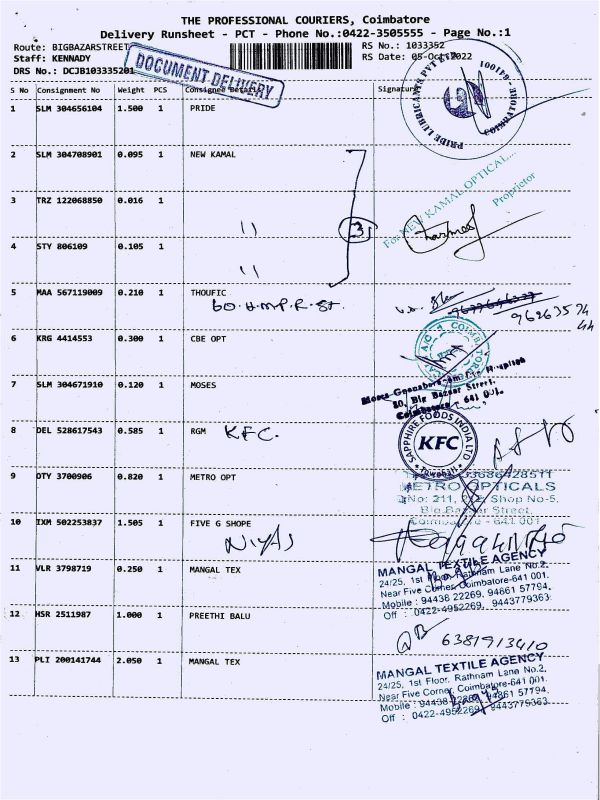 THE PROFESSIONAL COURIERS, Coimbatore
Delivery Runsheet - PCT - Phone No.:0422-3505555 - Page No.:1
Route: BIGBAZARSTREET RS No.: 1033352
Staff: KENNADY RS Date: 05-Oct-2022
DRS No.: DCJB103335201
DOCUMENT DELIVERY
S No Consignment No Weight PCS Consignee Details Signature
PRIDE LUBRICANTS PVT LTD COIMBATORE - 641001
1 SLM 304656104 1.500 1 PRIDE
2 SLM 304708901 0.095 1 NEW KAMAL
For NEW KAMAL OPTICAL...
Proprietor
3 TRZ 122068850 0.016 1
11
3
4 STY 806109 0.105 1
11
5 MAA 567119009 0.210 1 THOUFIC
60. H.M.P.R. St.
9626353444
6 KRG 4414553 0.300 1 CBE OPT
7 SLM 304671910 0.120 1 MOSES
Moses Hospital
80, Big Bazaar Street,
Coimbatore - 641 001.
8 DEL 528617543 0.585 1 RGM KFC.
SAPPHIRE FOODS INDIA LTD
KFC
9 OTY 3700906 0.820 1 METRO OPT
METRO OPTICALS
No: 211, Shop No-5,
Big Bazaar Street,
Coimbatore - 641 001
10 IXM 502253837 1.505 1 FIVE G SHOPE
NIYAS
11 VLR 3798719 0.250 1 MANGAL TEX
MANGAL TEXTILE AGENCY
24/25, 1st Floor, Rathnam Lane No.2,
Near Five Corner, Coimbatore-641 001.
Mobile : 94438 22269, 94861 57794,
Off : 0422-4952269, 9443779363
12 HSR 2511987 1.000 1 PREETHI BALU
6381913410
13 PLI 200141744 2.050 1 MANGAL TEX
MANGAL TEXTILE AGENCY
24/25, 1st Floor, Rathnam Lane No.2,
Near Five Corner, Coimbatore-641 001.
Mobile : 94438 22269, 94861 57794,
Off : 0422-4952269, 9443779363